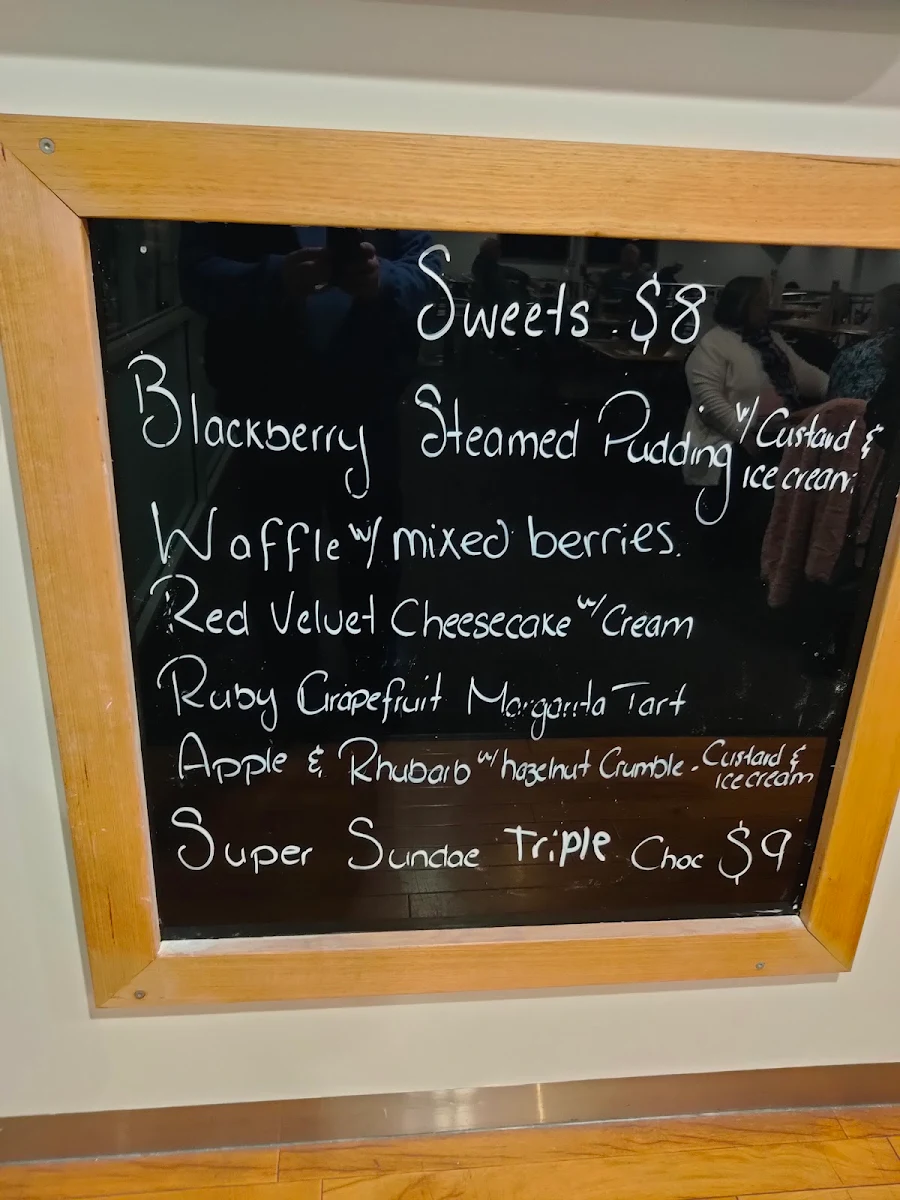 Sweets . $8
Blackberry Steamed Pudding w/ Custard &
ice cream
Waffle w/ mixed berries.
Red Velvet Cheesecake w/ Cream
Ruby Grapefruit Margarita Tart
Apple & Rhubarb w/ hazelnut Crumble - Custard &
ice cream
Super Sundae Triple Choc $9